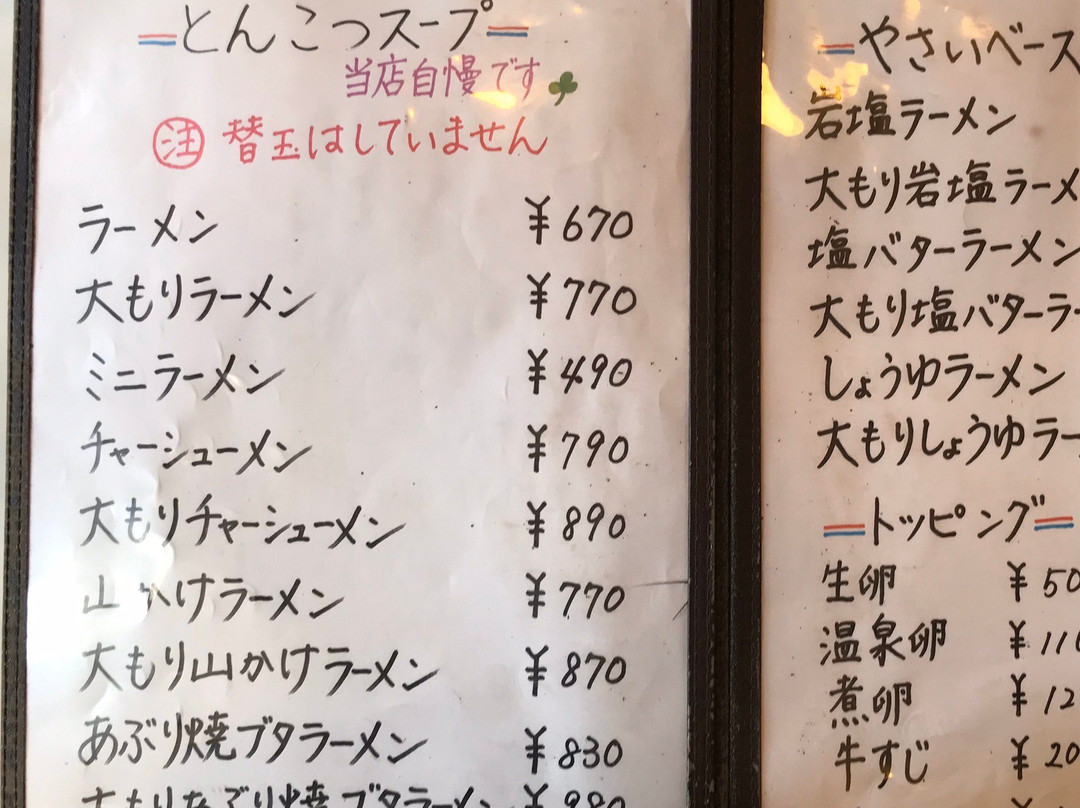 とんこつスープ
当店自慢です
注 替玉はしていません
ラーメン ¥670
大もりラーメン ¥770
ミニラーメン ¥490
チャーシューメン ¥790
大もりチャーシューメン ¥890
山かけラーメン ¥770
大もり山かけラーメン ¥870
あぶり焼ブタラーメン ¥830
大もりあぶり焼ブタラーメン
やさいベース
岩塩ラーメン
大もり岩塩ラーメ
塩バターラーメン
大もり塩バターラー
しょうゆラーメン
大もりしょうゆラー
トッピング
生卵 ¥50
温泉卵 ¥110
煮卵 ¥12
牛すじ ¥20